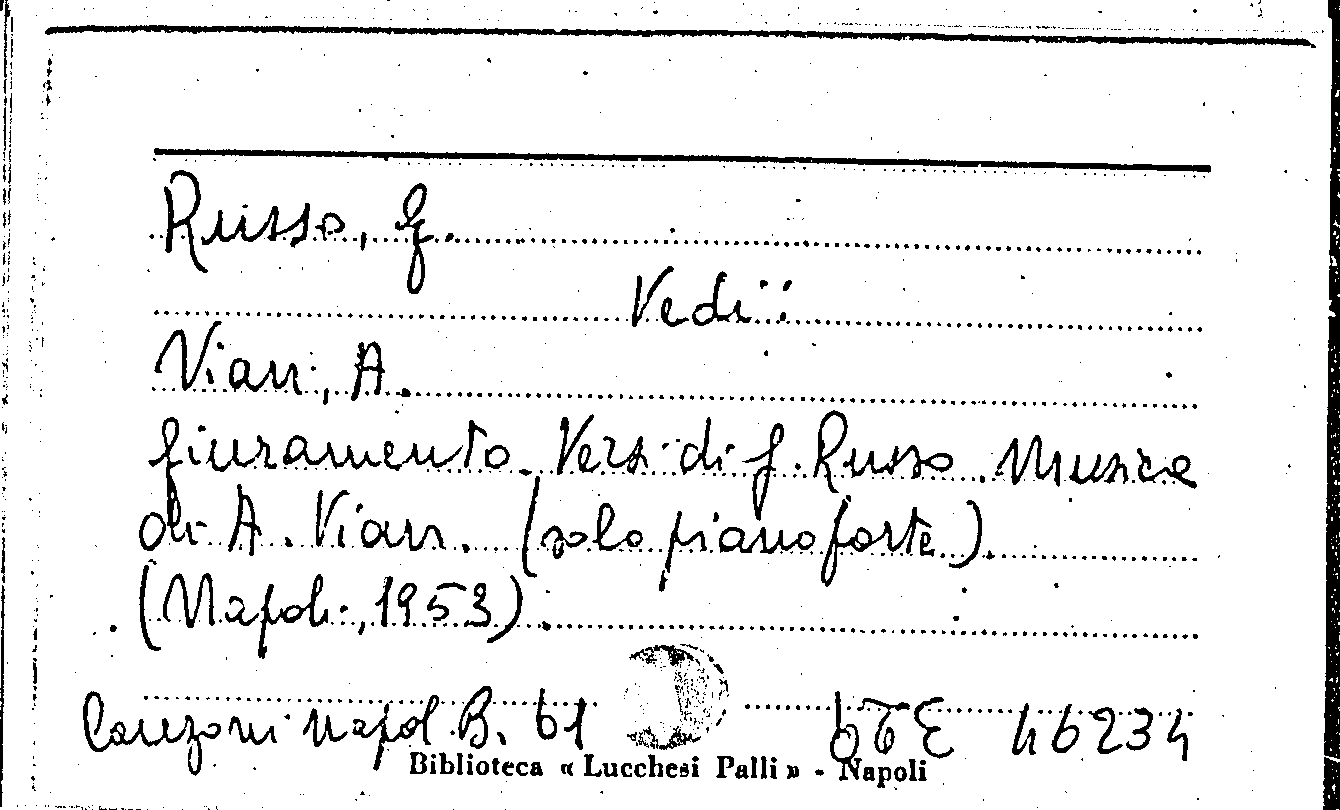 Russo, G.
Vedi:
Vian, A.
Giuramento. Versi di G. Russo. Musica
di A. Vian. (solo pianoforte).
(Napoli, 1953).
Canzoni napol. B. 61 46234
Biblioteca « Lucchesi Palli » - Napoli